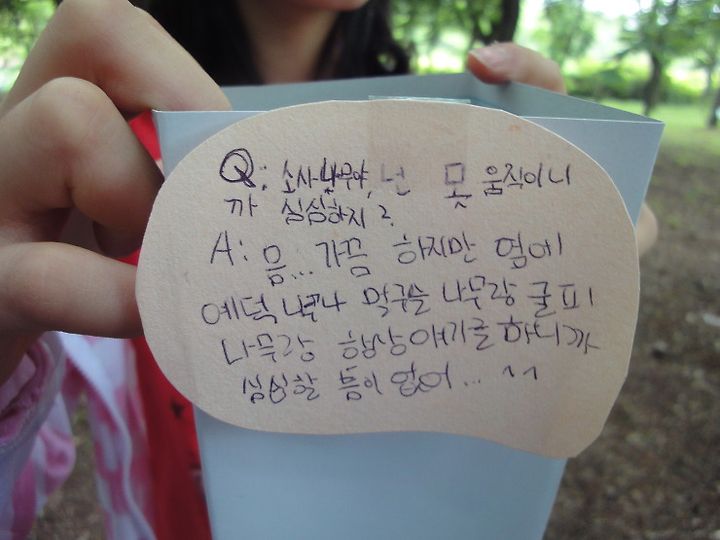 Q: 소사나무야, 넌 못 움직이니
까 심심하지?
A: 음... 가끔 하지만 옆에
예덕 나무나 말구슬 나무랑 굴피
나무랑 항상 얘기를 하니까
심심할 틈이 없어... ^^